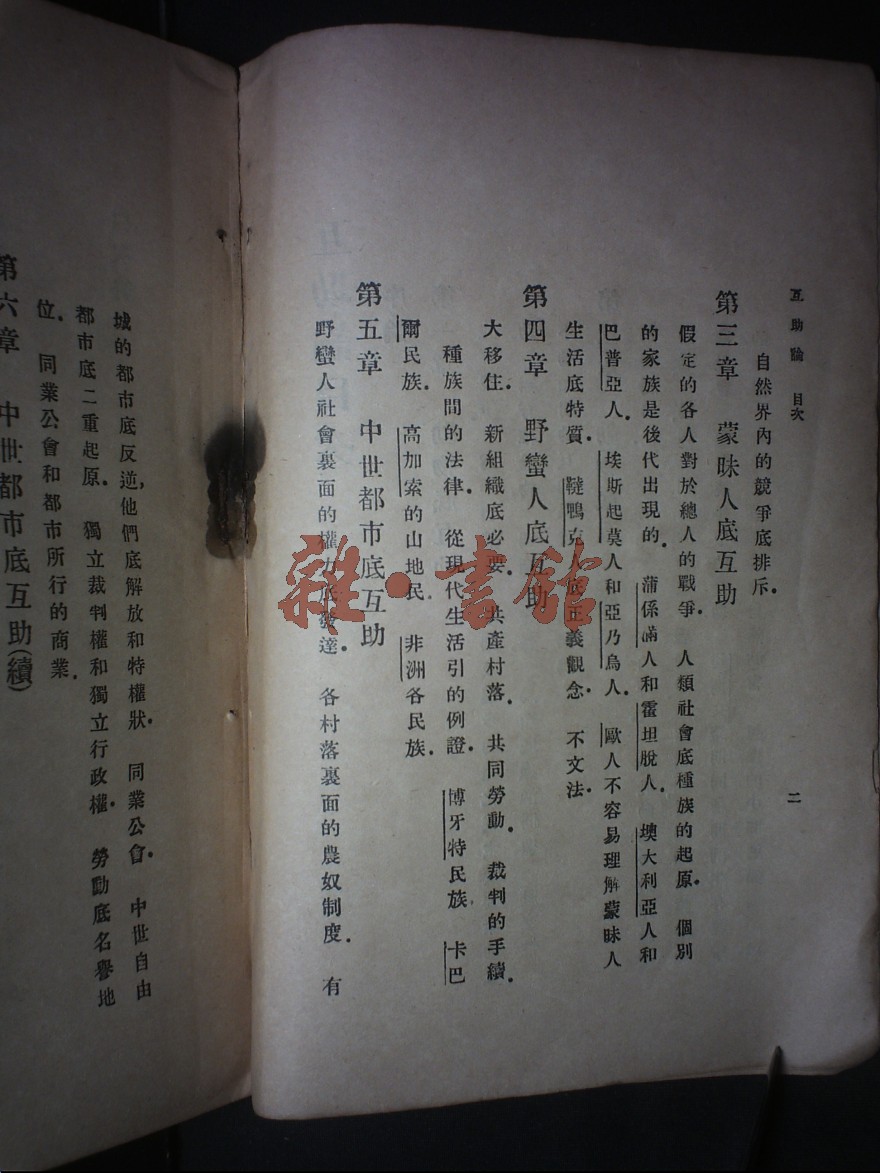 互助論 目次
二
自然界內的競爭底排斥．
第三章 蒙昧人底互助
假定的各人對於總人的戰爭． 人類社會底種族的起原． 個別
的家族是後代出現的． 蒲係滿人和霍坦脫人． 墺大利亞人和
巴普亞人． 埃斯起莫人和亞乃烏人． 歐人不容易理解蒙昧人
生活底特質． 韃鴨克人底正義觀念． 不文法．
第四章 野蠻人底互助
大移住． 新組織底必要． 共產村落． 共同勞動． 裁判的手續．
種族間的法律． 從現代生活引的例證． 博牙特民族 卡巴
爾民族． 高加索的山地民． 非洲各民族．
第五章 中世都市底互助
野蠻人社會裏面的權力底發達． 各村落裏面的農奴制度． 有
城的都市底反逆，他們底解放和特權狀． 同業公會． 中世自由
都市底二重起原． 獨立裁判權和獨立行政權． 勞動底名譽地
位． 同業公會和都市所行的商業．
第六章 中世都市底互助（續）
雜·書館